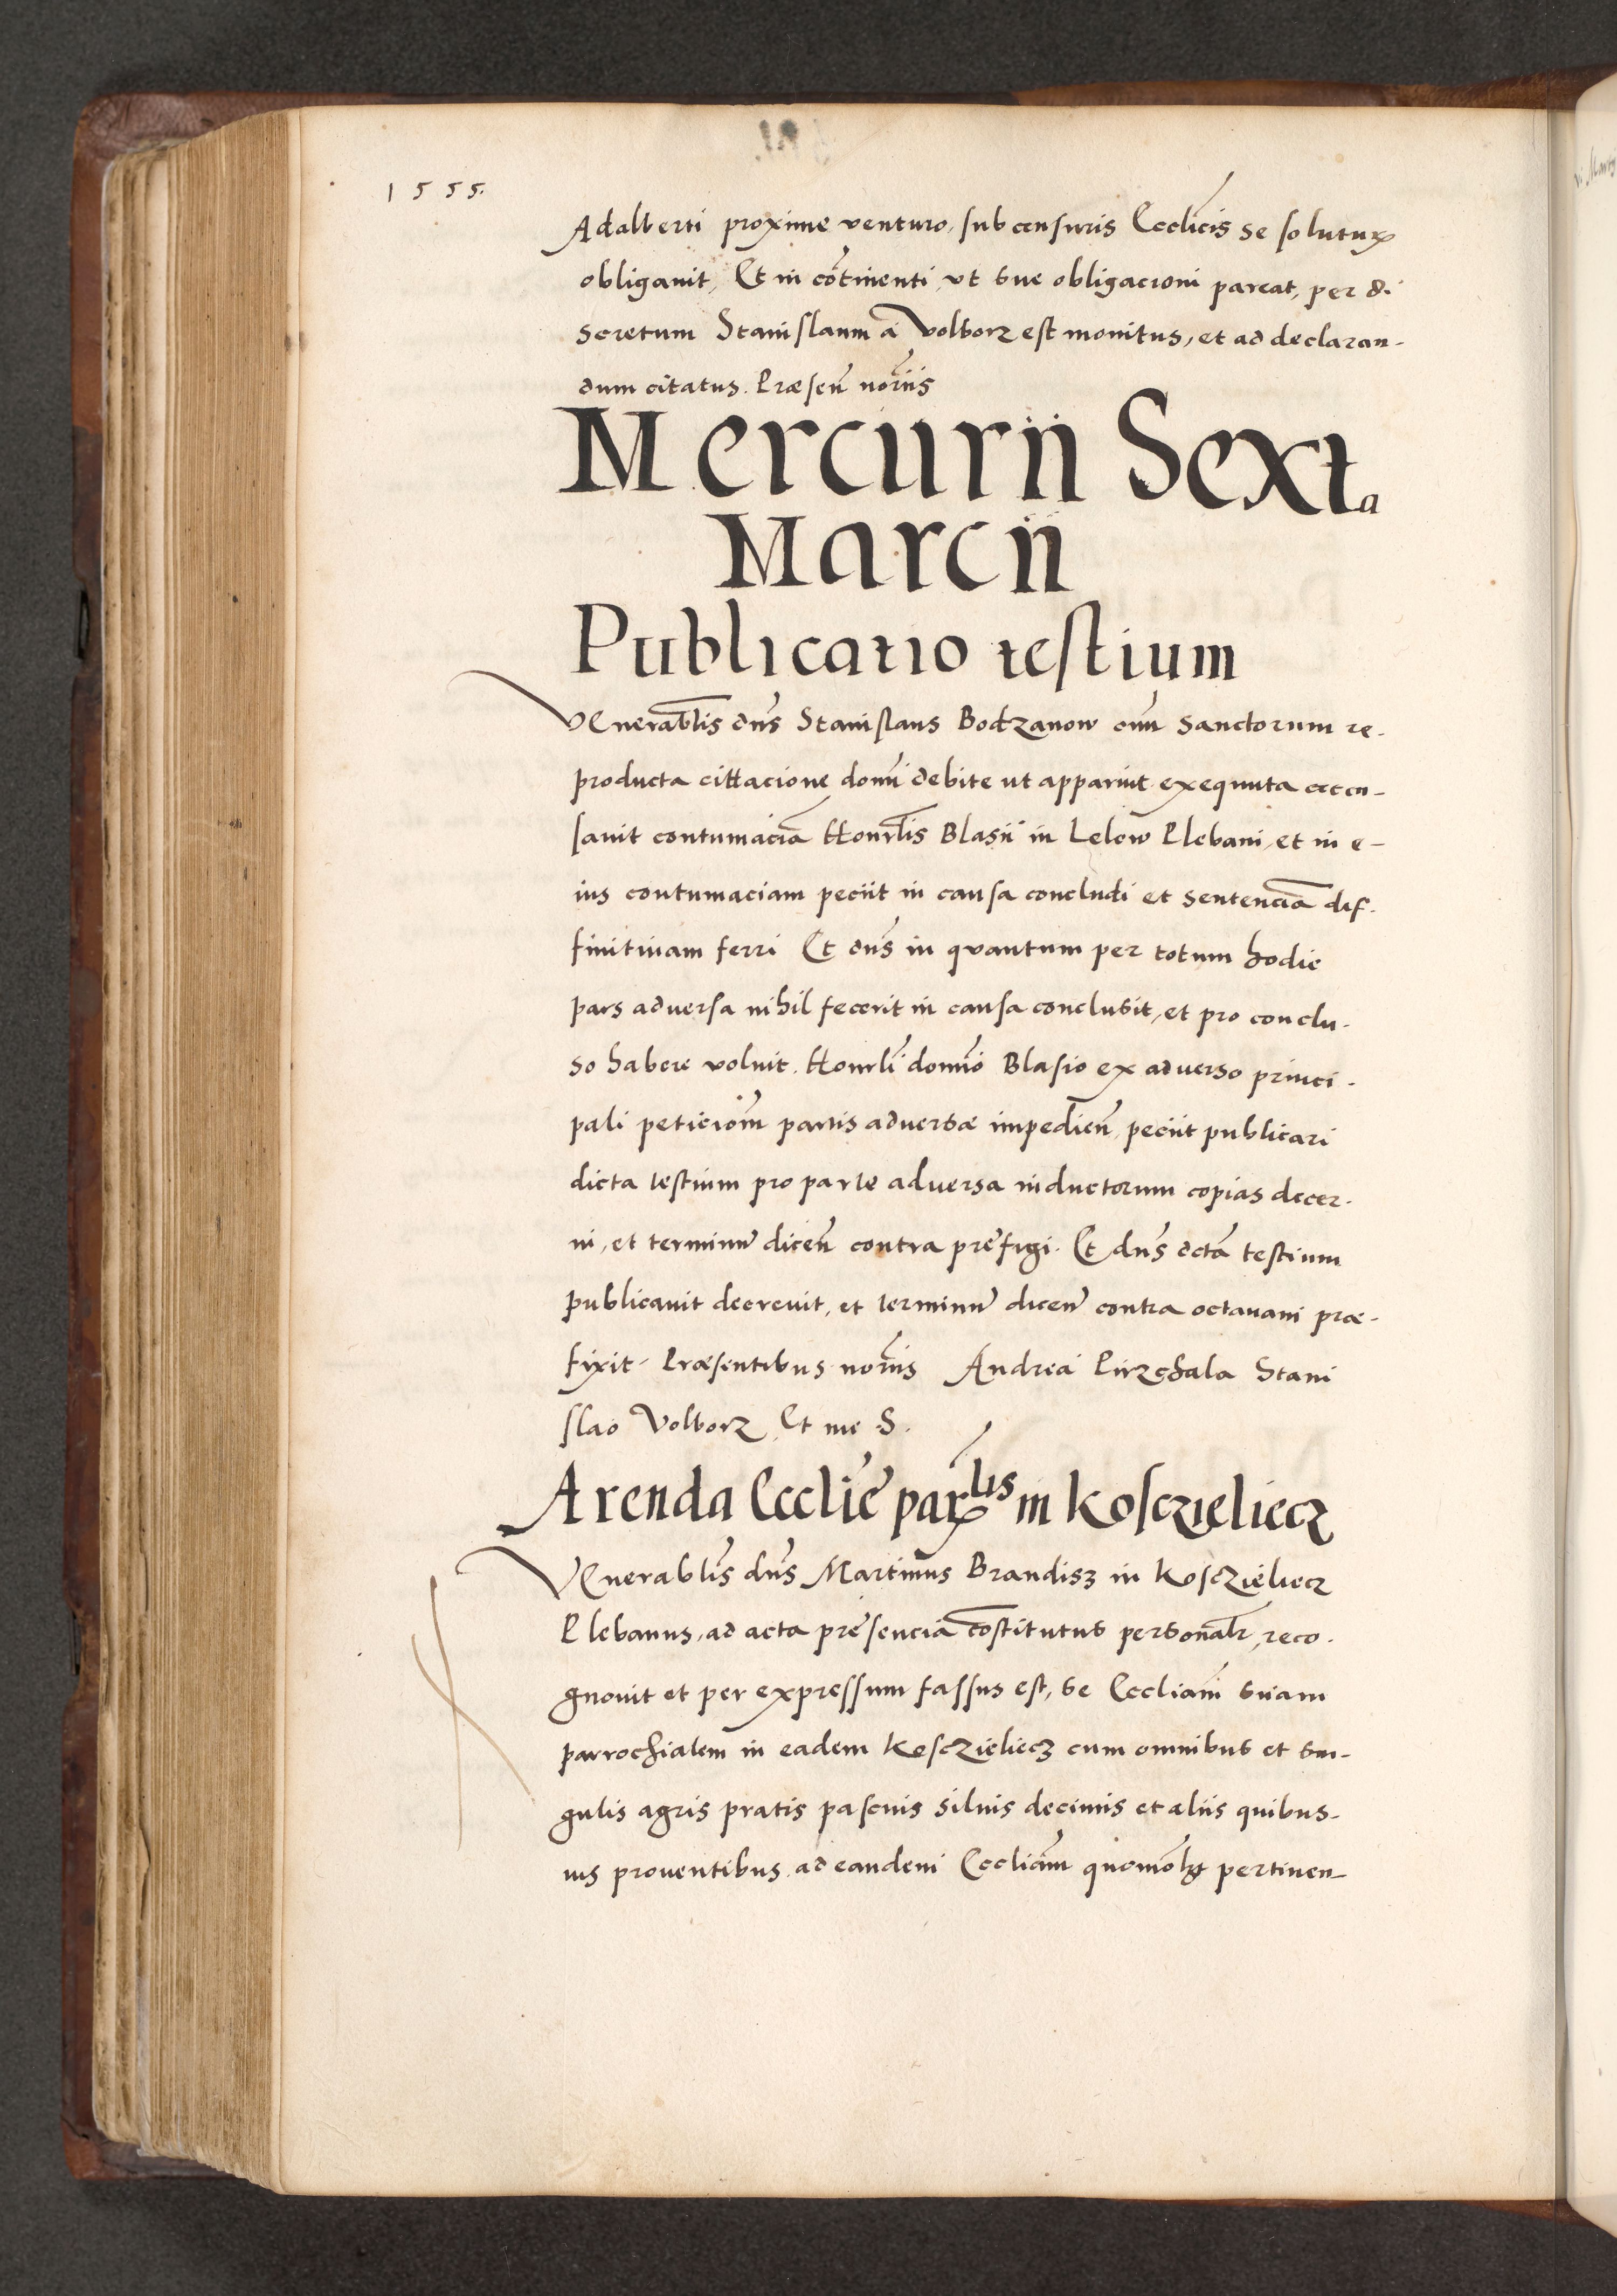 1555.
Adalberti proxime venturo, sub censuris Ecclīcis se soluturꝝ
obligavit, Et in cōtinenti, ut sue obligacioni pareat, per di
scretum Stanislaum a Volborz est monitus, et ad declaran-
dum citatus. Præsen̄ nor̄iis
Mercurii Sexta
Marcii
Publicatio testium
VEnerabl̄is dn̄s Stanislaus Bodzanow om̄ Sanctorum re-
producta cittacione domī debite ut apparuit exequuta accu-
savit contumaciā Honrl̄is Blasii in Lelow Plebani, et in e-
ius contumaciam peciit in causa concludi et sentenciā dif-
finitivam ferri Et dn̄s in quantum per totum hodie
pars adversa nihil fecerit in causa conclusit, et pro conclu-
so habere voluit. Honrl̄i domīo Blasio ex adverso princi-
pali peticiōm partis adversæ impedien̄, peciit publicari
dicta testium pro parte adversa inductorum copias decer-
ni, et terminū dicen̄ contra prefigi. Et dn̄s dctā testium
publicavit decrevit, et terminū dicen̄ contra octavam præ-
fixit. Præsentibus nor̄iis Andrea Pirzchala Stani
slao Volborz Et me S.
Arenda Ecclīe parꝝlis in Kosczieliecz
VEnerabl̄is dn̄s Martinus Brandisz in Kosczieliecz
Plebanus, ad acta presenciā cōstitutus personalr̄, reco-
gnovit et per expressum fassus est, se Eccliam̄ suam
parrochialem in eadem Kosczieliecz cum omnibus et sin-
gulis agris pratis pascuis silvis decimis et aliis quibus-
vis proventibus ad eandem Eccliām quomōlꝫt pertinen-